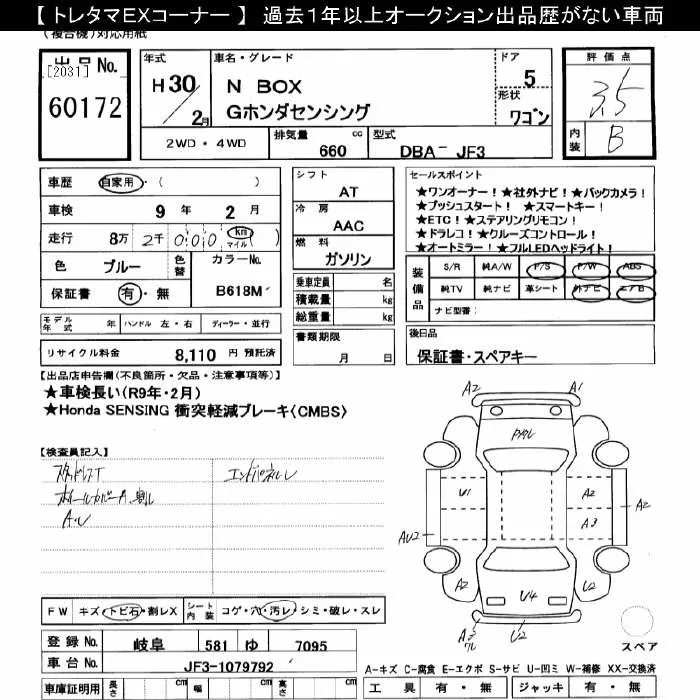 【 トレタマEXコーナー 】 過去1年以上オークション出品歴がない車両
(複合機)対応用紙
出品No.
[2031]
60172
年式
H 30/2月
車名・グレード
N BOX
Gホンダセンシング
ドア
5
形状
ワゴン
評価点
3.5
内装
B
2WD・4WD
排気量 660 cc
型式 DBA- JF3
車歴 自家用・( )
車検 9年 2月
走行 8万 2千 000 km マイル ( )
色 ブルー
色替
カラーNo.
B618M
保証書 有・無
シフト
AT
冷房
AAC
燃料
ガソリン
乗車定員 名
積載量 kg
総重量 kg
書類期限
月 日
セールスポイント
★ワンオーナー!★社外ナビ!★バックカメラ!
★プッシュスタート! ★スマートキー!
★ETC!★ステアリングリモコン!
★ドラレコ!★クルーズコントロール!
★オートミラー!★フルLEDヘッドライト!
装備品
S/R 純A/W P/S P/W ABS
純TV 純ナビ 革シート 外ナビ エアB
ナビ型番:
モデル年式 年 ハンドル 左・右 ディーラー・並行
リサイクル料金 8,110 円 預託済
後日品
保証書・スペアキー
【出品店申告欄(不良箇所・欠品・注意事項等)】
★車検長い(R9年・2月)
★Honda SENSING 衝突軽減ブレーキ<CMBS>
【検査員記入】
スタッドレスT
エンドパネルU
ホイールカバーA、割レ
A・U
A2 A1
U1 A2 A2
A3
AU2
A2 U4 U2
A3
ワレ
U2
スペア
FW キズ・トビ石・割レX
シート内装 コゲ・穴・汚レ・シミ・破レ・スレ
登録No. 岐阜 581 ゆ 7095
車台No. JF3-1079792
車庫証明用 長さ cm 幅 cm 高さ cm
A-キズ C-腐食 E-エクボ S-サビ U-凹ミ W-補修 XX-交換済
工具 有・無 ジャッキ 有・無